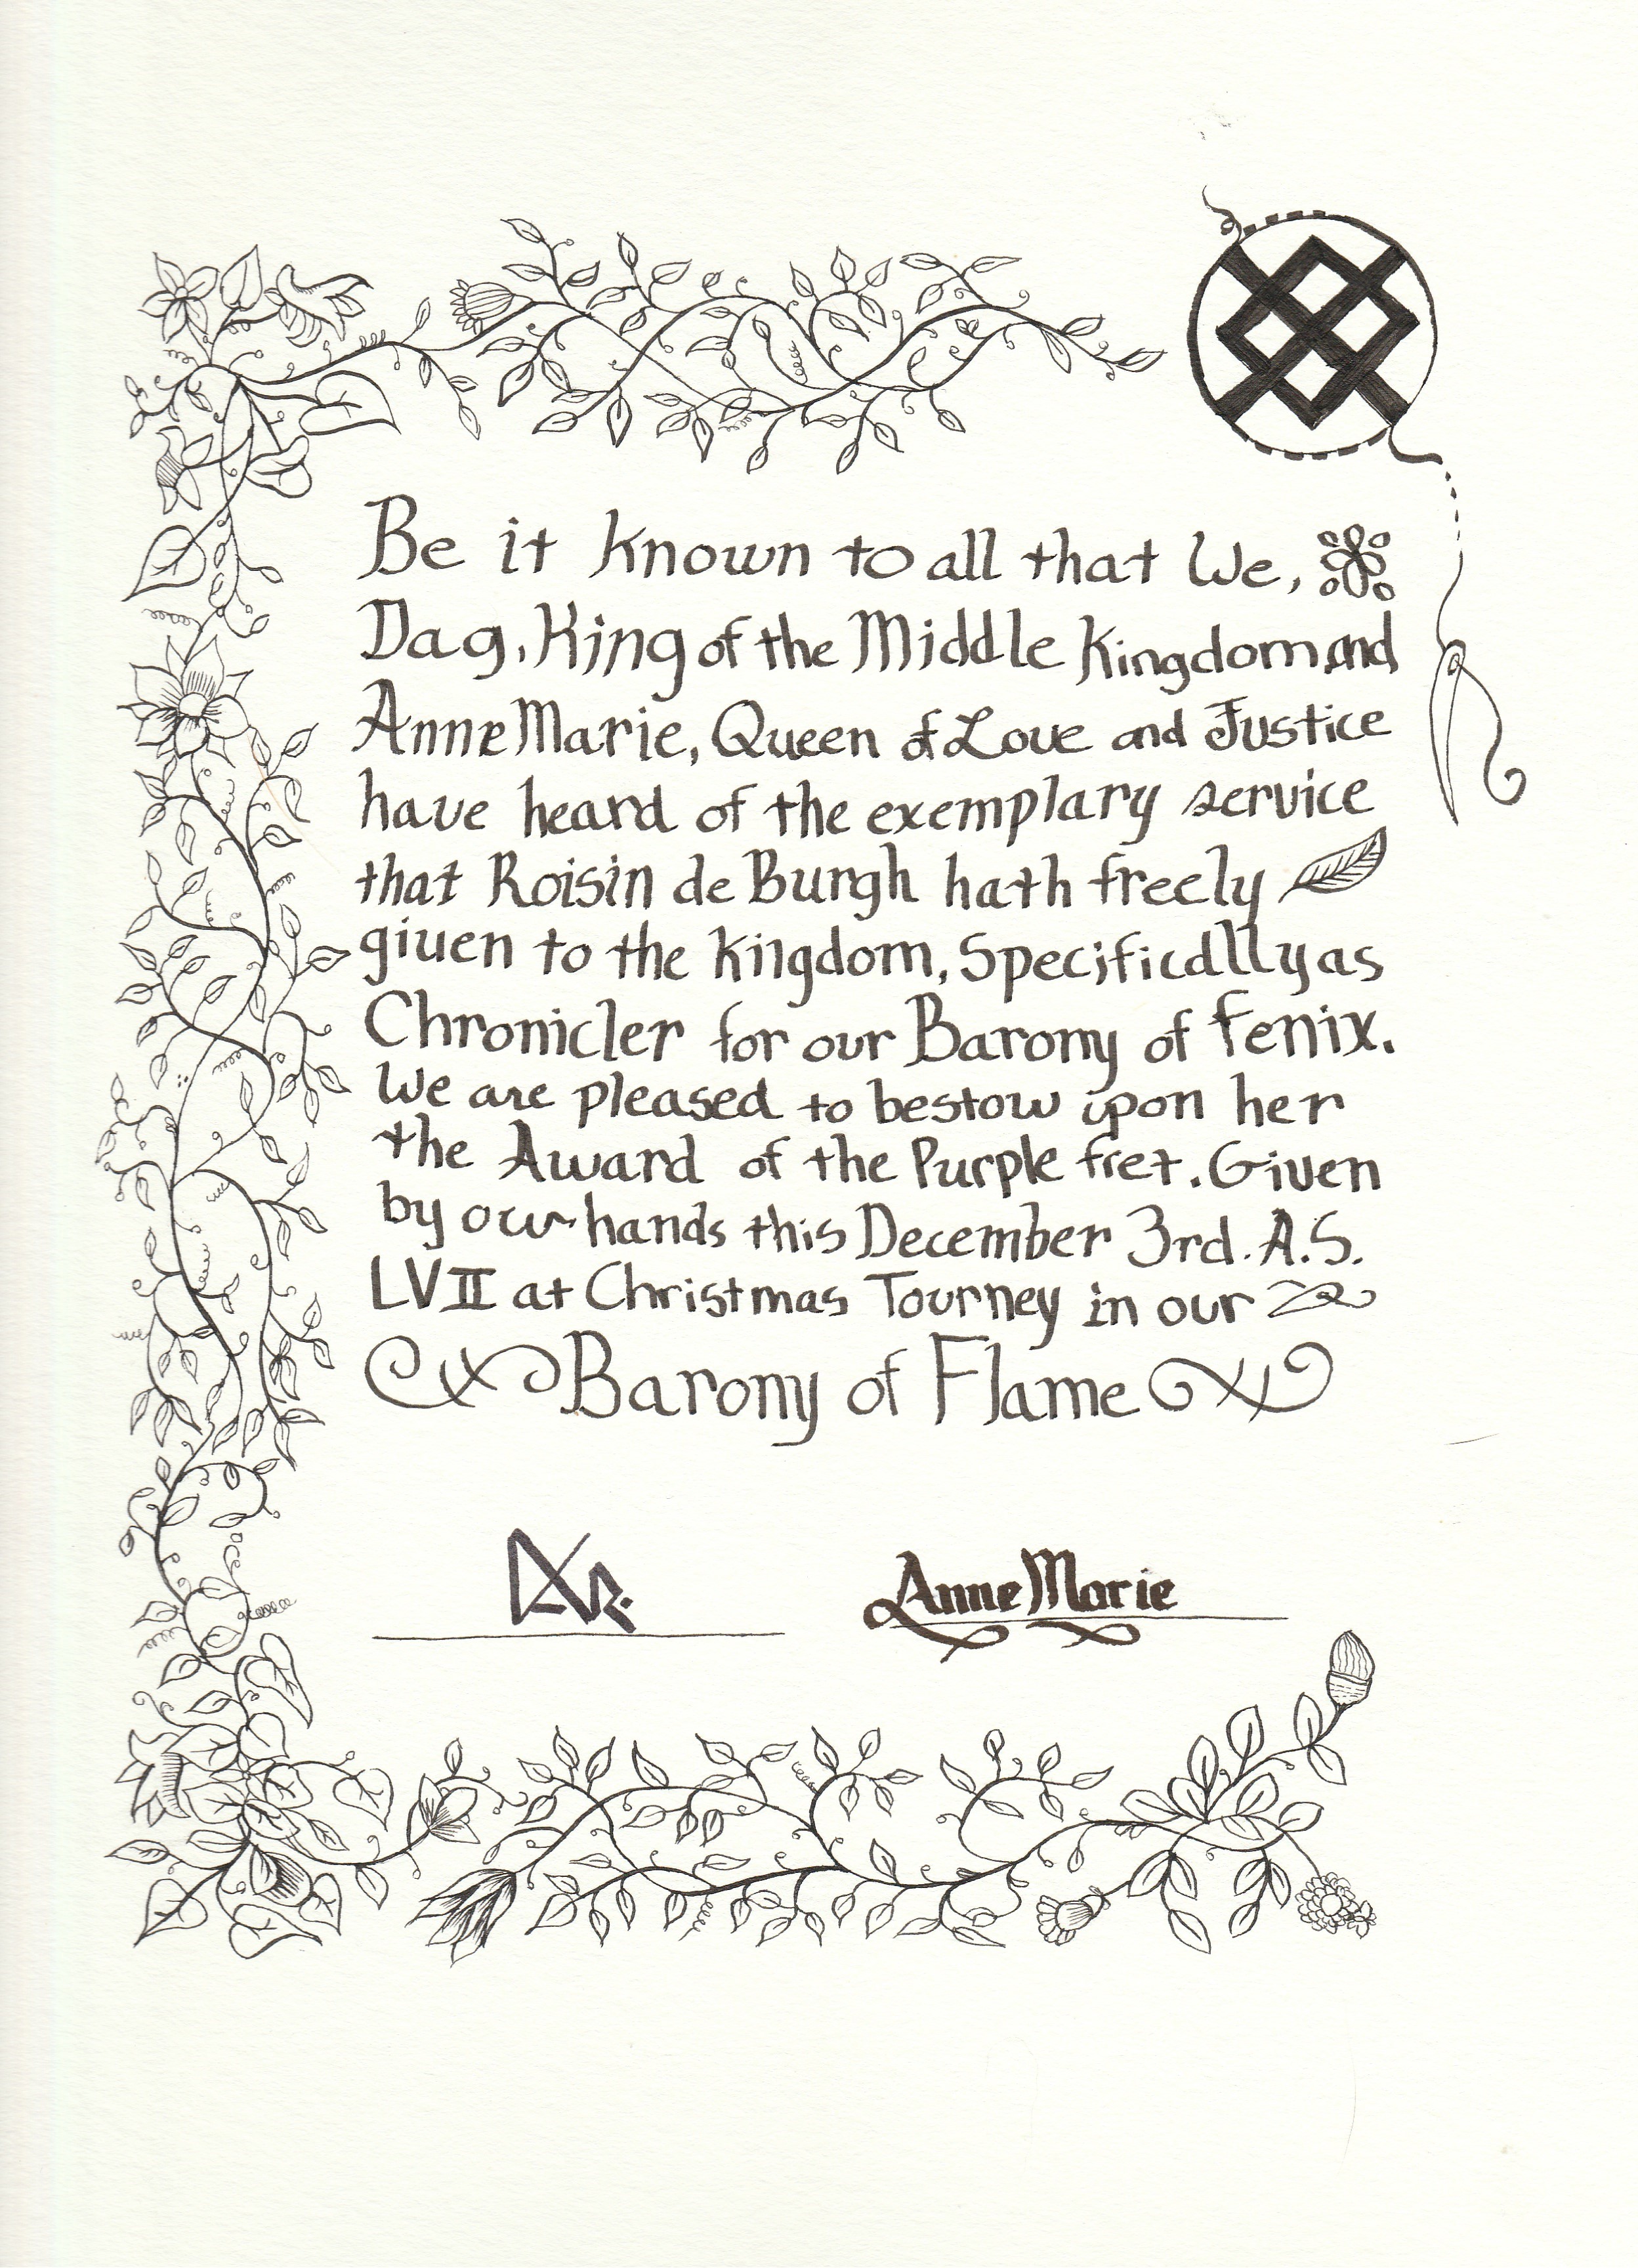 Be it known to all that We,
Dag, King of the Middle Kingdom and
AnneMarie, Queen of Love and Justice
have heard of the exemplary service
that Roisin de Burgh hath freely
given to the Kingdom, Specifically as
Chronicler for our Barony of Fenix.
We are pleased to bestow upon her
the Award of the Purple fret. Given
by our hands this December 3rd. A.S.
LVII at Christmas Tourney in our
Barony of Flame
AnneMarie